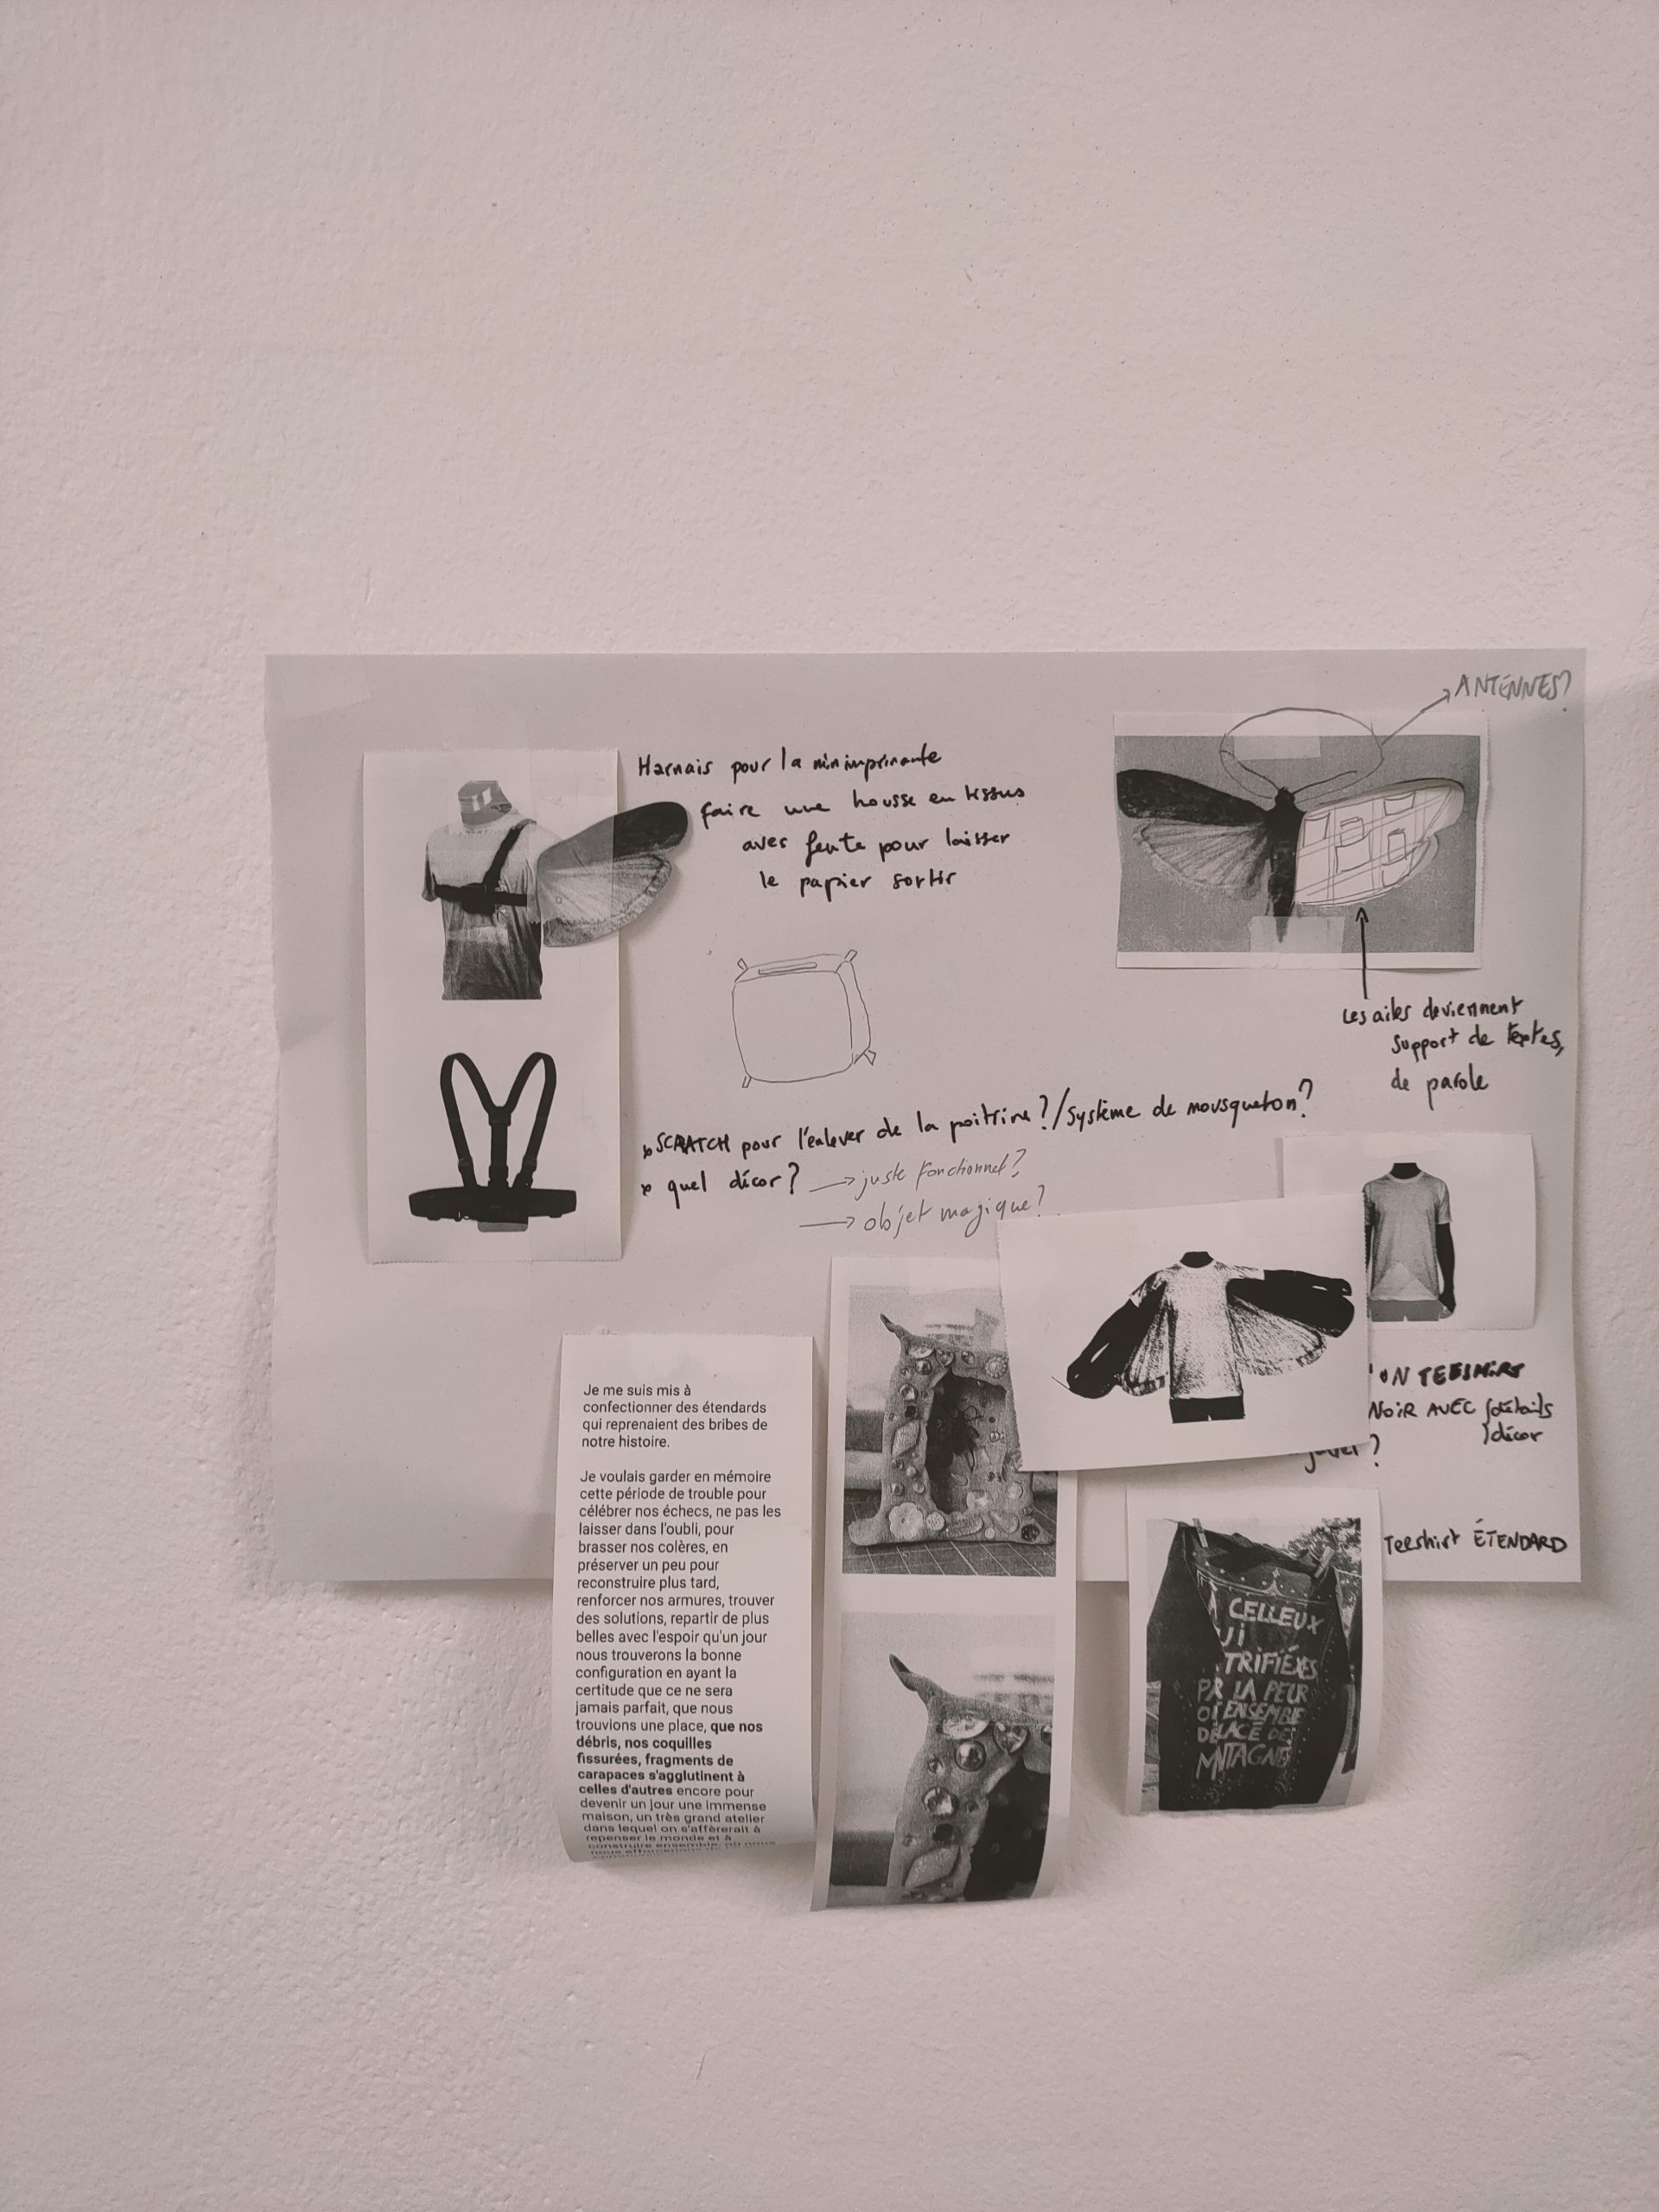 ANTENNES?
Harnais pour la minimprimante
faire une housse en tissus
avec fente pour laisser
le papier sortir
Les ailes deviennent
support de textes,
de parole
SCRATCH pour l'enlever de la poitrine?/système de mousqueton?
quel décor? → juste fonctionnel?
→ objet magique?
ON TEESHIRT
NOIR AVEC {détails
}décor
?
Teeshirt ÉTENDARD
Je me suis mis à
confectionner des étendards
qui reprenaient des bribes de
notre histoire.
Je voulais garder en mémoire
cette période de trouble pour
célébrer nos échecs, ne pas les
laisser dans l'oubli, pour
brasser nos colères, en
préserver un peu pour
reconstruire plus tard,
renforcer nos armures, trouver
des solutions, repartir de plus
belles avec l'espoir qu'un jour
nous trouverons la bonne
configuration en ayant la
certitude que ce ne sera
jamais parfait, que nous
trouvions une place, que nos
débris, nos coquilles
fissurées, fragments de
carapaces s'agglutinent à
celles d'autres encore pour
devenir un jour une immense
maison, un très grand atelier
dans lequel on s'affèrerait à
repenser le monde et à
construire ensemble, où nous
À CELLEUX
UI
TRIFIÉXES
PAR LA PEUR
ONT ENSEMBLE
DÉPLACÉ DES
MONTAGNES